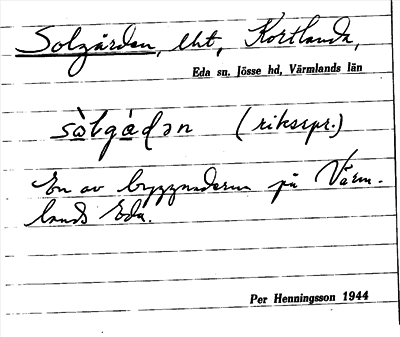 Solgården, lht, Kortlanda,
Eda sn, Jösse hd, Värmlands län
sòlgådən (riksspr.)
En av byggnaderna på Värm-
lands Eda.
Per Henningsson 1944